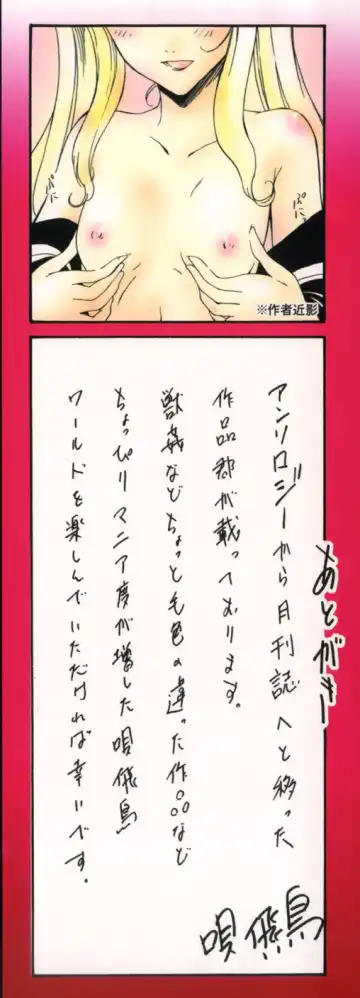 ぷに
ぷに
※作者近影
あとがきー
アンソロジーから月刊誌へと移った
作品郡が載っております。
獣姦などちょっと毛色の違った作品など
ちょっぴりマニア度が増した唄飛鳥
ワールドを楽しんでいただければ幸いです。
唄飛鳥